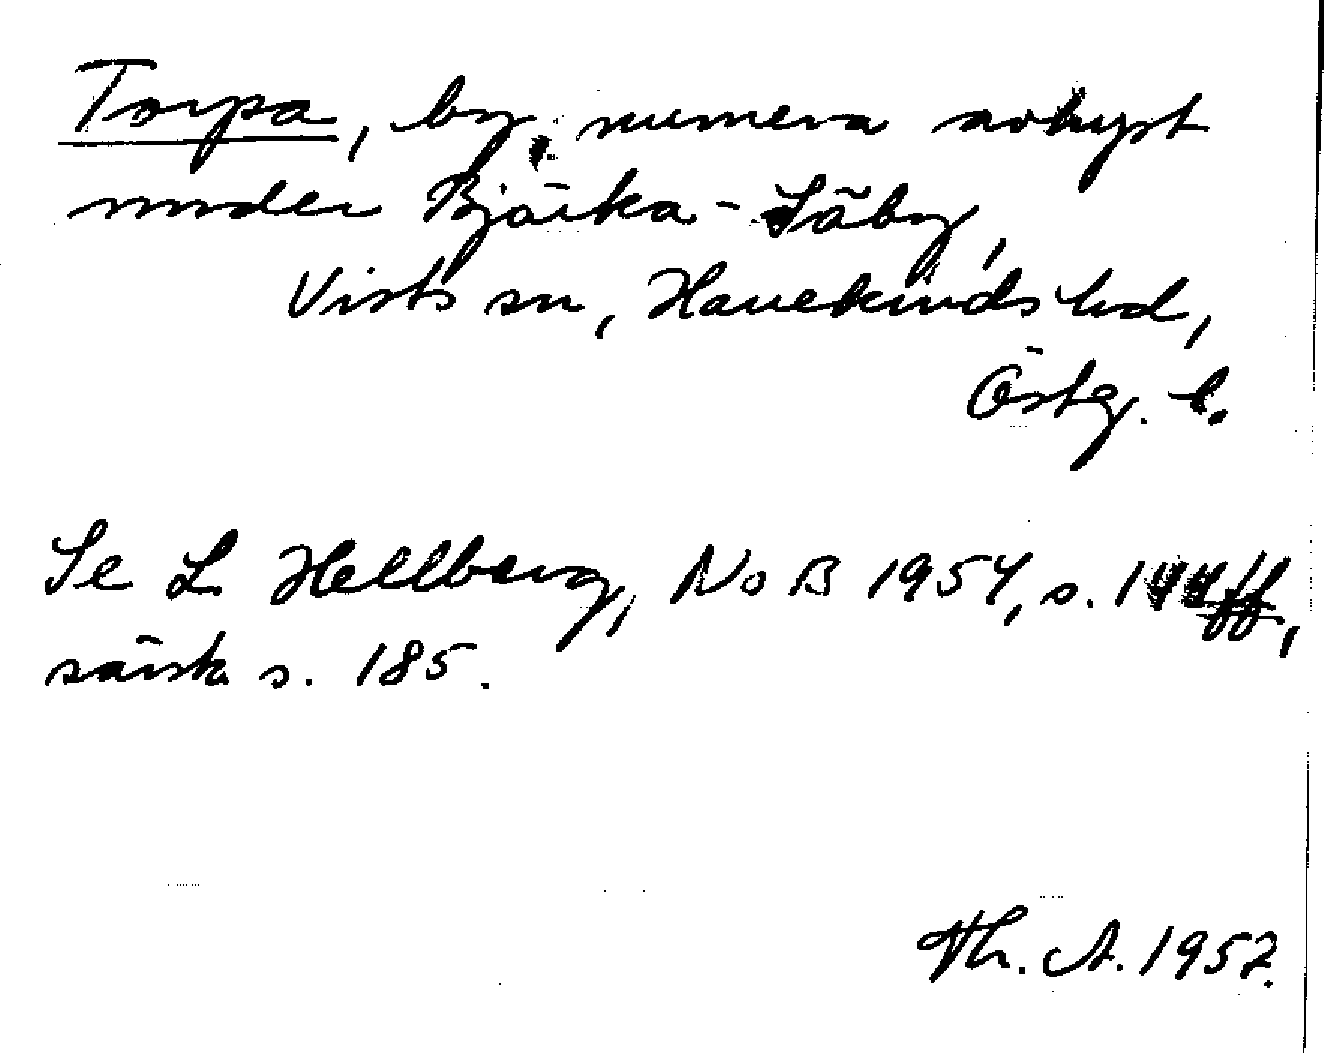 Torpa, by, numera avhyst
under Bjärka-Säby,
Vists sn, Hanekinds hd,
Östg. l.
Se L Hellberg, NoB 1954, s. 144 ff,
särsk s. 185.
Th. A. 1957.